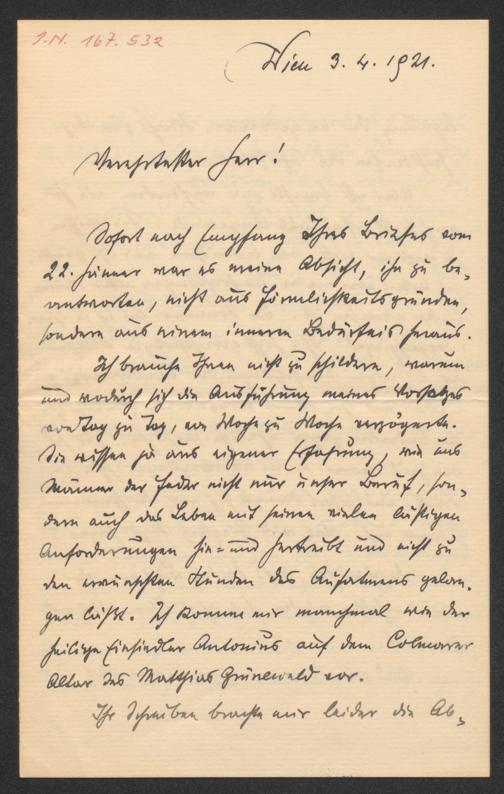 I.N. 167.532
Wien 3. 4. 1921.
Verehrtester Herr!
Sofort nach Empfang Ihres Briefes vom
22. Jänner war es meine Absicht, ihn zu be-
antworten, nicht aus Förmlichkeitsgründen,
sondern aus einem inneren Bedürfnis heraus.
Ich brauche Ihnen nicht zu schildern, warum
und wodurch sich die Ausführung meines Vorsatzes
von Tag zu Tag, von Woche zu Woche verzögerte.
Sie wissen ja aus eigener Erfahrung, wie uns
Männer der Feder nicht nur unser Beruf, son-
dern auch das Leben mit seinen vielen lästigen
Anforderungen hin- und hertreibt und nicht zu
den erwünschten Stunden des Aufatmens gelan-
gen läßt. Ich komme mir manchmal wie der
heilige Einsiedler Antonius auf dem Colmarer
Altar des Matthias Grünewald vor.
Ihr Schreiben brachte mir leider die Ab-